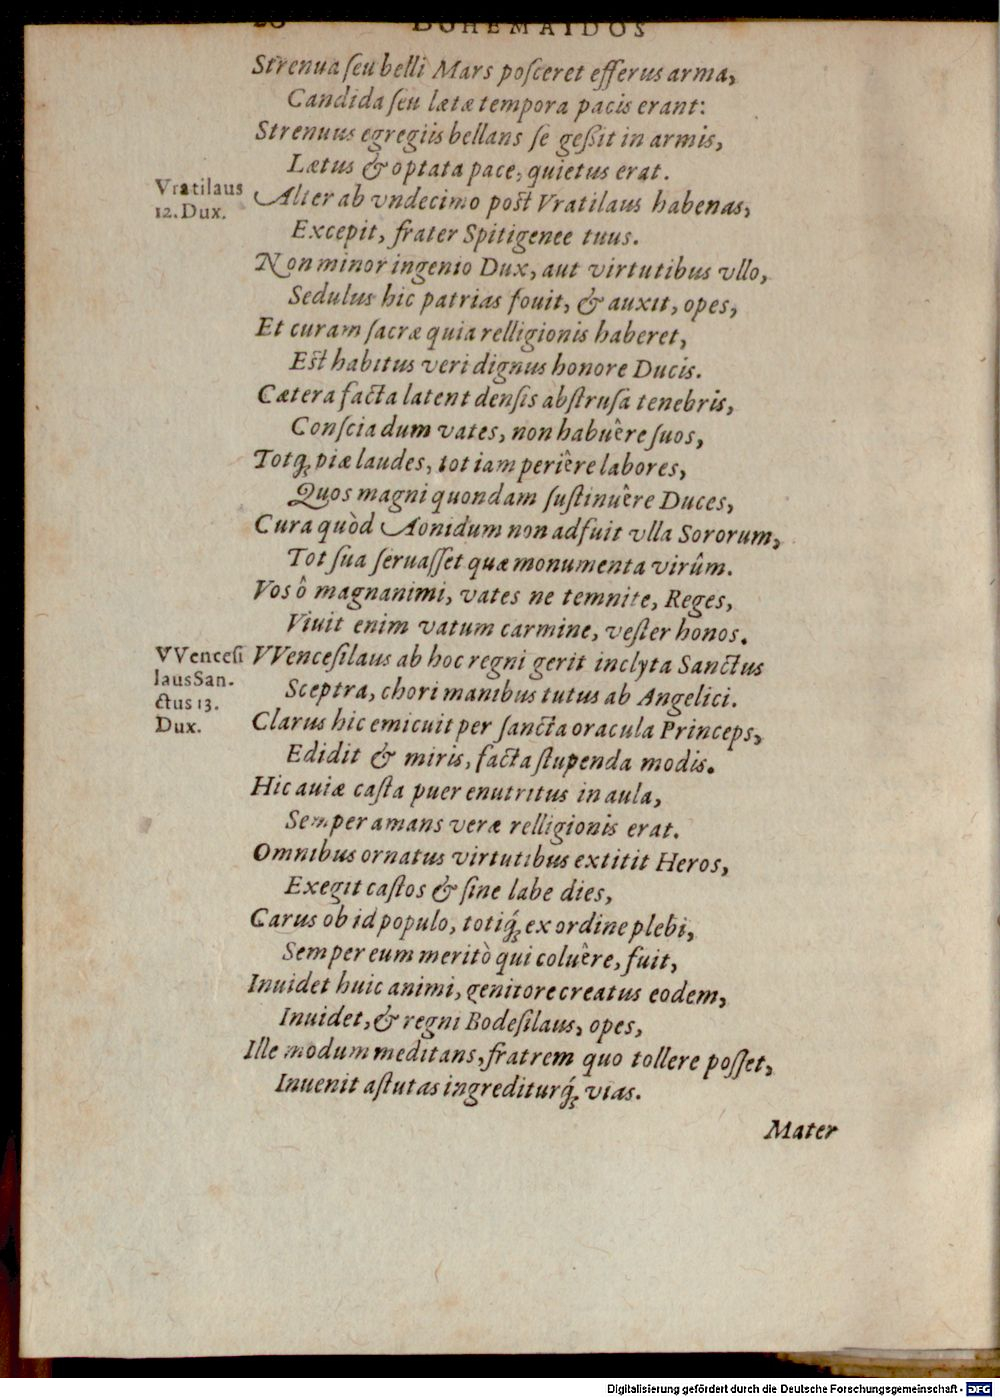 BOHEMAIDOS
Strenua ſeu belli Mars poſceret efferus arma,
Candida ſeu lætæ tempora pacis erant:
Strenuus egregiis bellans ſe geßit in armis,
Lætus & optata pace, quietus erat.
Vratilaus
12. Dux.
Alter ab vndecimo poſt Vratilaus habenas,
Excepit, frater Spitigenee tuus.
Non minor ingenio Dux, aut virtutibus vllo,
Sedulus hic patrias fouit, & auxit, opes,
Et curam ſacræ quia relligionis haberet,
Eſt habitus veri dignus honore Ducis.
Cætera facta latent denſis abſtruſa tenebris,
Conſcia dum vates, non habuêre ſuos,
Totq́; piæ laudes, tot iam periêre labores,
Quos magni quondam ſuſtinuêre Duces,
Cura quòd Aonidum non adfuit vlla Sororum,
Tot ſua ſeruaſſet quæ monumenta virûm.
Vos ô magnanimi, vates ne temnite, Reges,
Viuit enim vatum carmine, veſter honos.
VVenceſi
laus San-
ctus 13.
Dux.
VVenceſilaus ab hoc regni gerit inclyta Sanctus
Sceptra, chori manibus tutus ab Angelici.
Clarus hic emicuit per ſancta oracula Princeps,
Edidit & miris, facta ſtupenda modis.
Hic auiæ caſta puer enutritus in aula,
Semper amans veræ relligionis erat.
Omnibus ornatus virtutibus extitit Heros,
Exegit caſtos & ſine labe dies,
Carus ob id populo, totiq́; ex ordine plebi,
Semper eum meritò qui coluêre, fuit,
Inuidet huic animi, genitore creatus eodem,
Inuidet, & regni Bodeſilaus, opes,
Ille modum meditans, fratrem quo tollere poſſet,
Inuenit aſtutas ingrediturq́; vias.
Mater
Digitalisierung gefördert durch die Deutsche Forschungsgemeinschaft - DFG